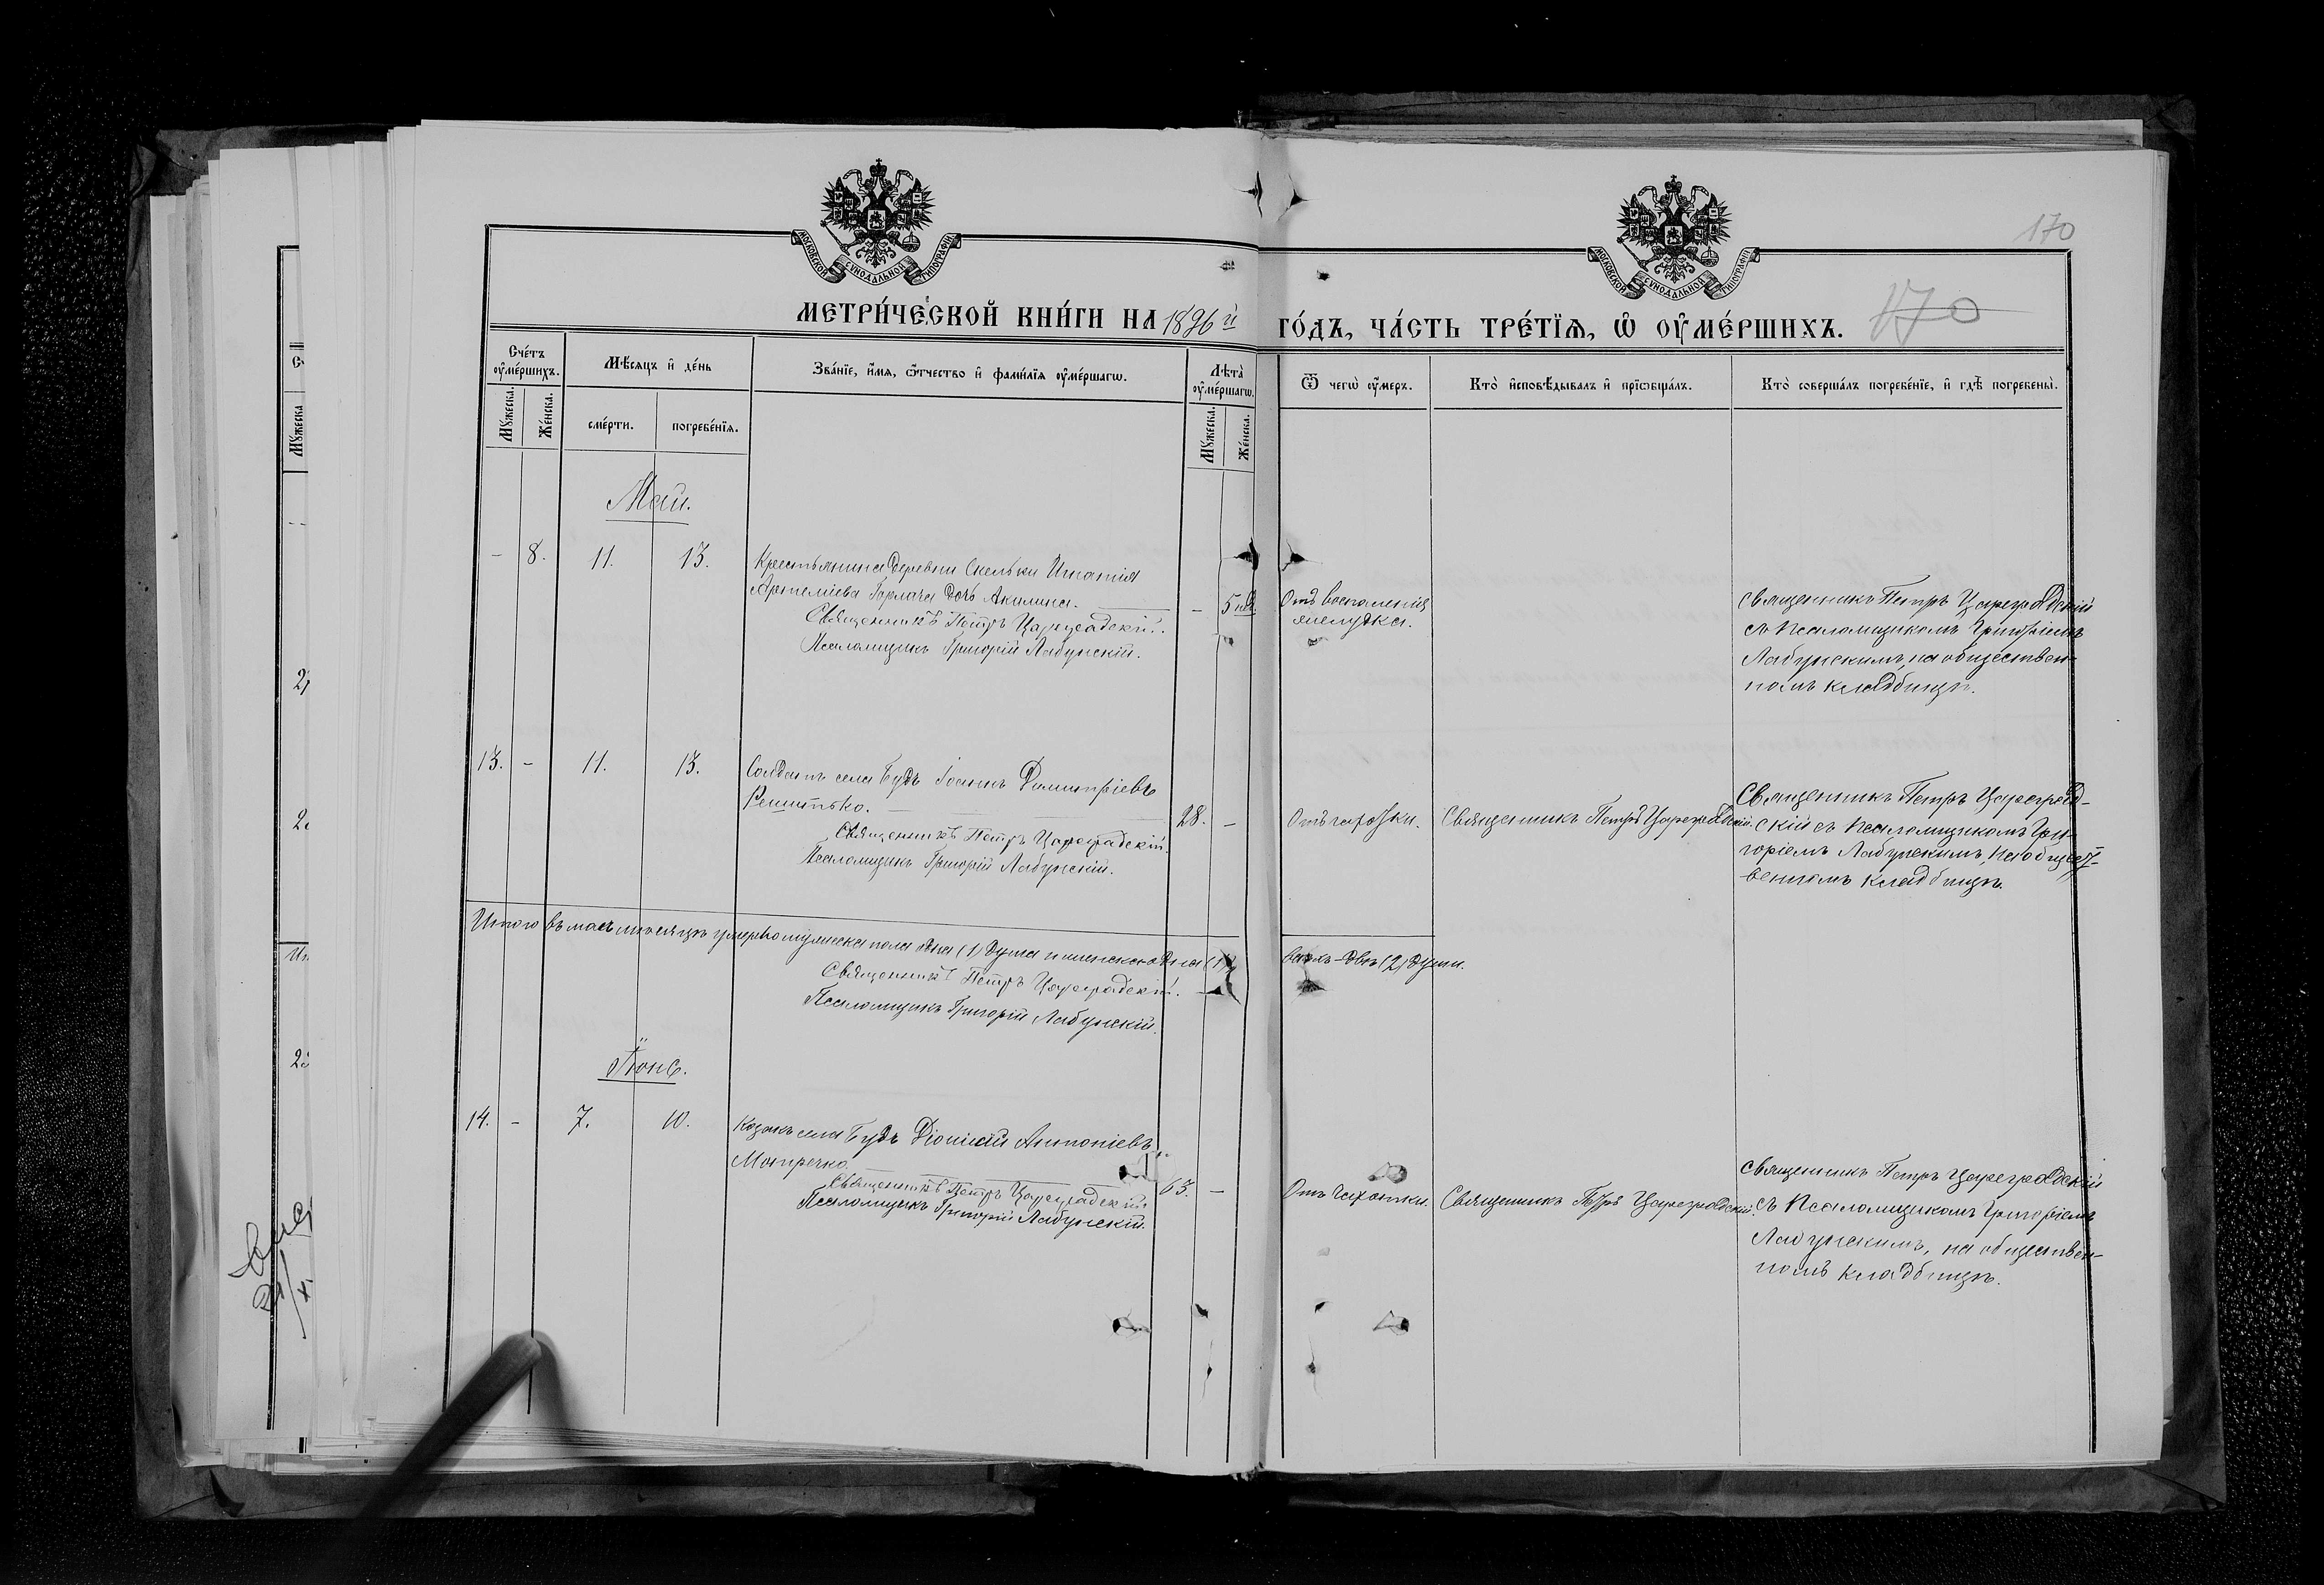 МОСКОВСКОЙ СѴНОДАЛЬНОЙ ТИПОГРАФІИ
МОСКОВСКОЙ СѴНОДАЛЬНОЙ ТИПОГРАФІИ
170
МЕТРИ́ЧЕСКОЙ КНИ́ГИ НА 1896 й
ГО́ДЪ, ЧА́СТЬ ТРЕ́ТЇѦ, Ѡ҆ ОУ҆МЕ́РШИХЪ.
170
Сче́тъ оу҆ме́ршихъ.
Мꙋжеска.
Же́нска.
Мѣ́сѧцъ и҆ де́нь
сме́рти.
погребе́нїѧ.
Зва́нїе, и҆́мѧ, ѻ҆́тчество и҆ фами́лїѧ оу҆ме́ршагѡ.
Лѣта̀ оу҆ме́ршагѡ.
Мꙋжеска.
Же́нска.
Ѿ чегѡ̀ оу҆́меръ.
Кто̀ и҆сповѣ́дывалъ и҆ прїѡбща́лъ.
Кто̀ соверша́лъ погребе́нїе, и҆ гдѣ̀ погребены̀.
Май.
- 8. 11. 13. Крестьянина деревни Скельки Игнатія
Артеміева Горлача дочь Акилина.
- 5 нед.
Священникъ Петръ Цареградскій.
Псаломщикъ Григорій Лабунскій.
Отъ воспаленія
желудка.
Священникъ Петръ Цареградскій
съ Псаломщикомъ Григоріемъ
Лабунскимъ, на обществен-
номъ кладбищѣ.
13. - 11. 13. Солдатъ села Будъ Іоаннъ Димитріевъ
Решитько.
28. -
Священникъ Петръ Цареградскій.
Псаломщикъ Григорій Лабунскій.
Отъ чахотки.
Священникъ Петръ Цареградскій.
Священникъ Петръ Цареград-
скій съ Псаломщикомъ Гри-
горіемъ Лабунскимъ, на общест-
венномъ кладбищѣ.
Итого въ маѣ мѣсяцѣ умерло мужеска пола одна (1) душа и женска одна (1),
всѣхъ - двѣ (2) души.
Священникъ Петръ Цареградскій.
Псаломщикъ Григорій Лабунскій.
Іюнь.
14. - 7. 10. Козакъ села Будъ Діонисій Антоніевъ
63. -
Священникъ Петръ Цареградскій.
Псаломщикъ Григорій Лабунскій.
Отъ чахотки.
Священникъ Петръ Цареградскій.
Священникъ Петръ Цареградскій
съ Псаломщикомъ Григоріемъ
Лабунскимъ, на обществен-
номъ кладбищѣ.